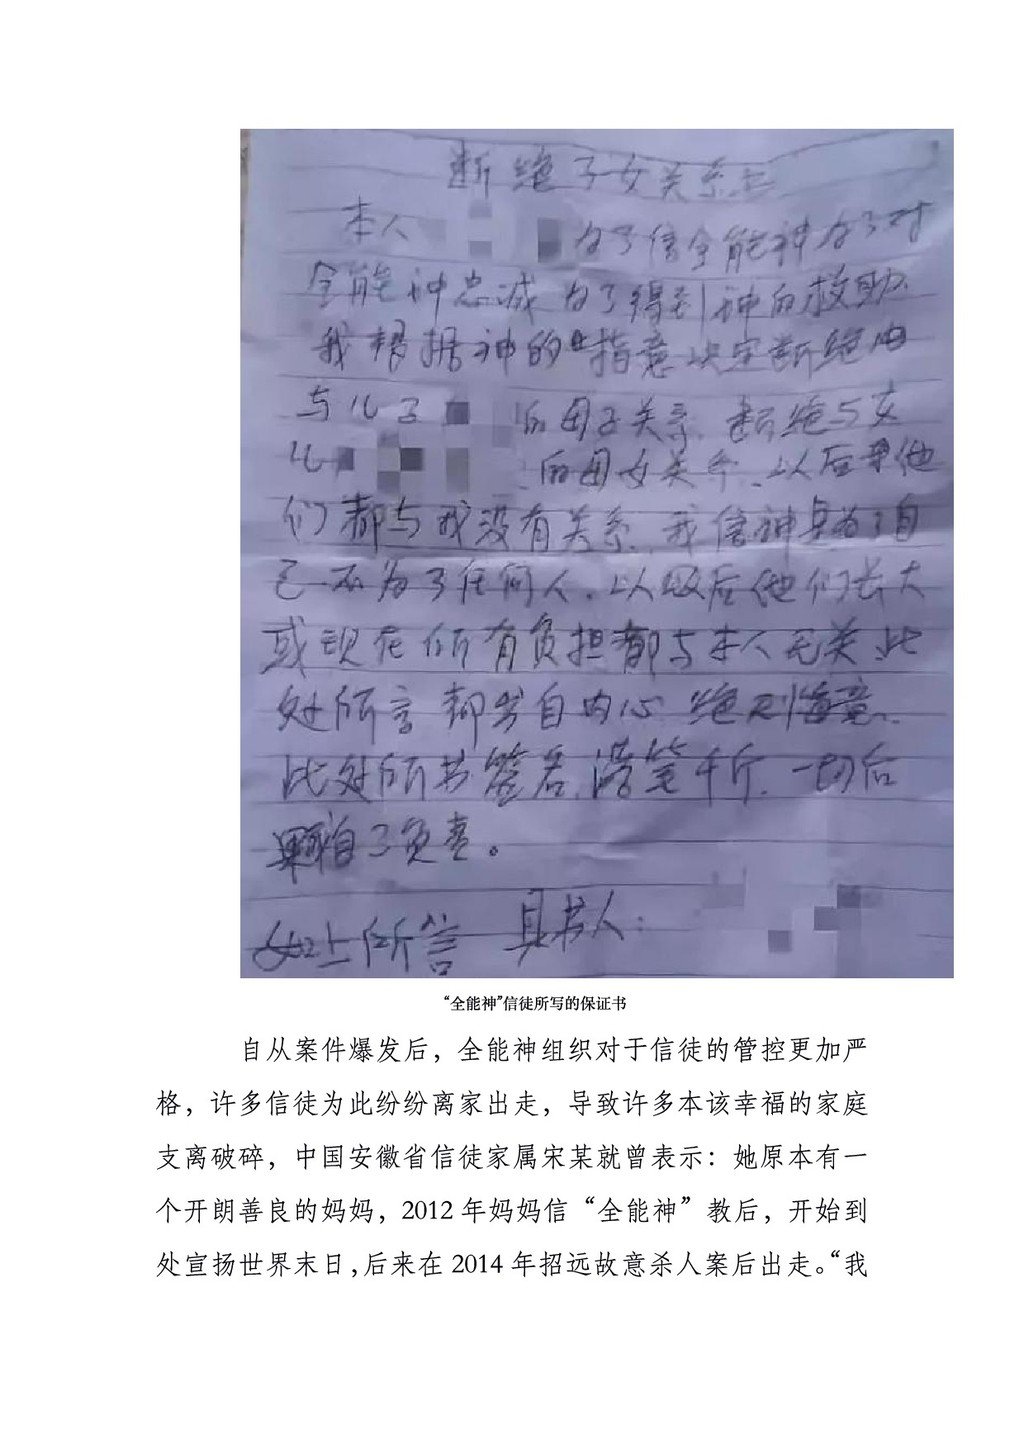 断绝子女关系书
本人 为了信全能神为了对
全能神忠诚 为了得到神的救助
我 据神的 指意决定断绝
与儿子 的母子关系 断绝与女
儿 的母女关系、以后 他
们都与我没有关系、我信神 为了自
己不为了任何人。以 后他们长大
或现在所有负担都与本人无关 此
处所言都出自内心 绝不悔意、
此处所书签名、落笔千斤、一切后
果 自 负责。
如上所 具书人:
“全能神”信徒所写的保证书
自从案件爆发后，全能神组织对于信徒的管控更加严
格，许多信徒为此纷纷离家出走，导致许多本该幸福的家庭
支离破碎，中国安徽省信徒家属宋某就曾表示：她原本有一
个开朗善良的妈妈，2012 年妈妈信“全能神”教后，开始到
处宣扬世界末日,后来在 2014 年招远故意杀人案后出走。“我